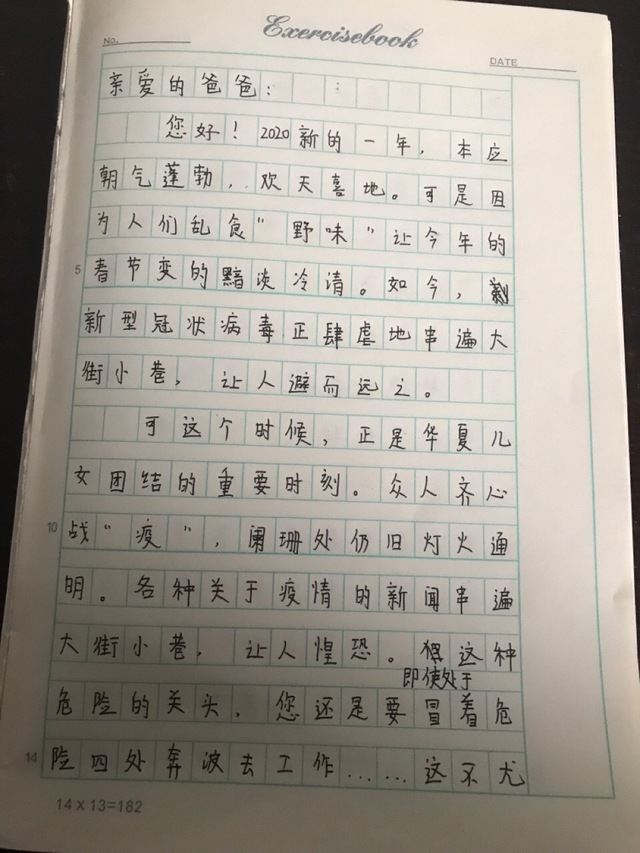 Exercisebook
No.
DATE
亲爱的爸爸：
您好！2020新的一年，本应
朝气蓬勃，欢天喜地。可是因
为人们乱食“野味”让今年的
5 春节变的黯淡冷清。如今，
新型冠状病毒正肆虐地串遍大
街小巷，让人避而远之。
可这个时候，正是华夏儿
女团结的重要时刻。众人齐心
10 战“疫”，阑珊处仍旧灯火通
明。各种关于疫情的新闻串遍
大街小巷，让人惶恐。这种
即使处于
危险的关头，您还是要冒着危
14 险四处奔波去工作……这不尤
14×13=182